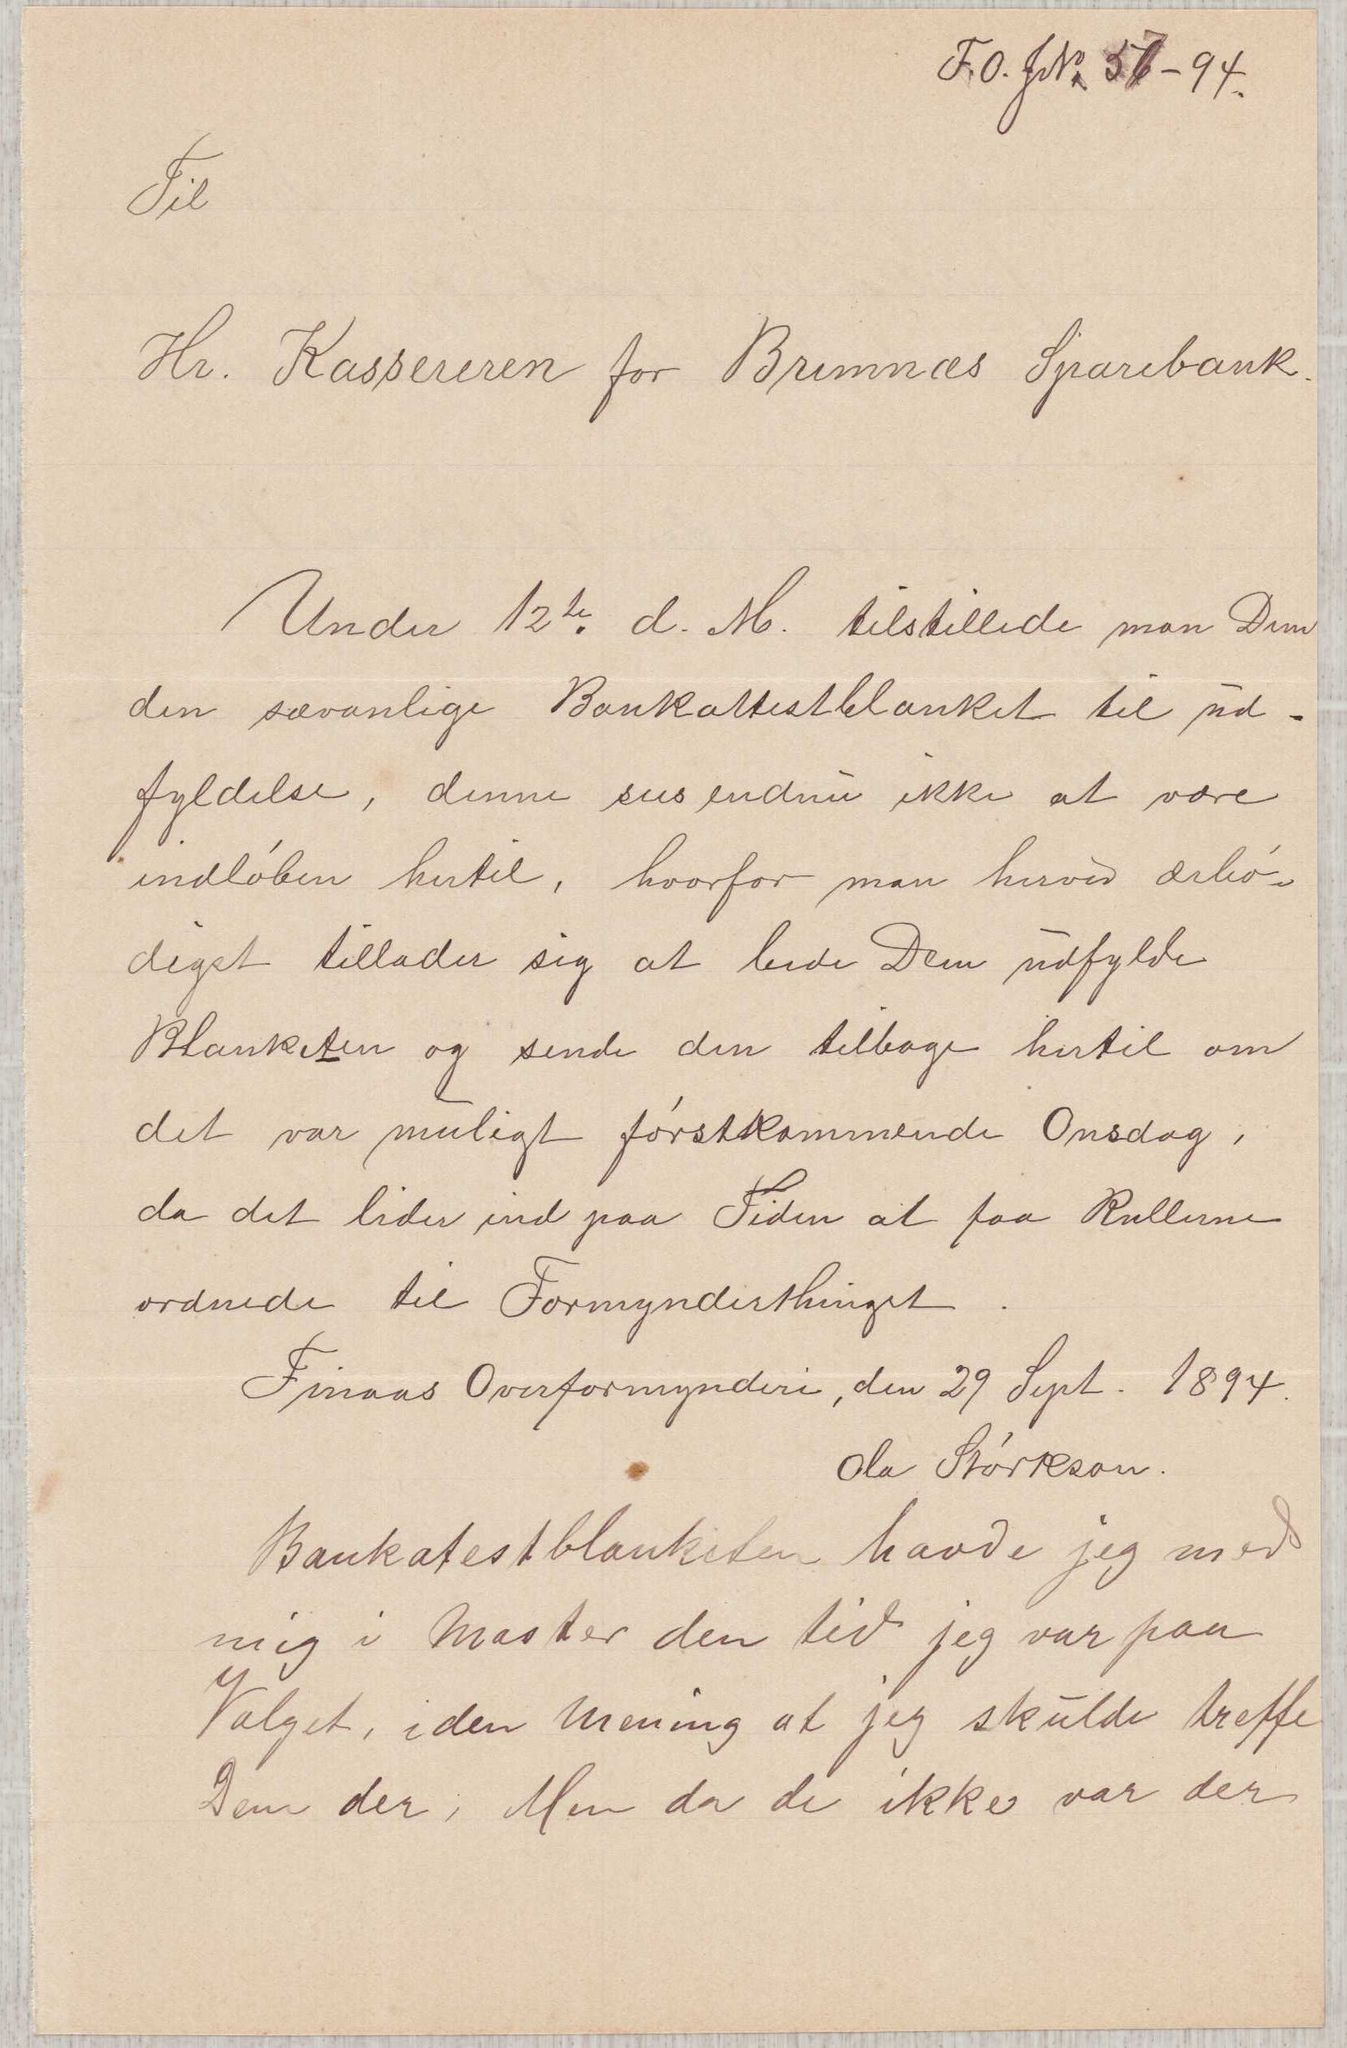 F.O. JNo 57-94.
Til
Hr. Kassereren for Bremnæs Sparebank.
Under 12te d. M. tilstillede man Dem
den sævanlige Bankattestblanket til ud-
fyldelse, denne sees endnu ikke at være
indløben hertil, hvorfor man herved ærbø-
digst tillader sig at bede Dem udfylde
Blanketten og sende den tilbage hertil om
det var muligt førstkommende Onsdag,
da det lider ind paa Tiden at faa Rullerne
ordnede til Formynderthinget.
Finaas Overformynderi, den 29 Sept. 1894.
Ola Størkson.
Bankatestblanketen havde jeg med
mig i Moster den tid jeg var paa
Valget, i den Mening at jeg skulde treffe
Dem der, Men da de ikke var der